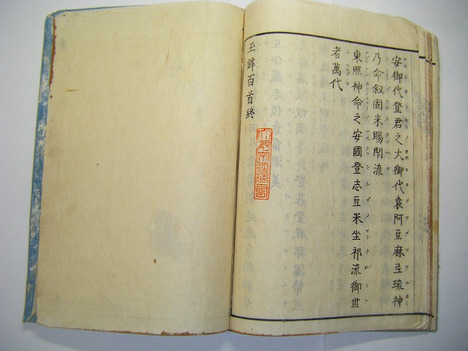 安御代登君之大御代袁阿豆麻豆琉神
乃命叙国米賜閇流
東照神命之安國登志豆米坐祁流御世
者萬代
玉鉾百首終